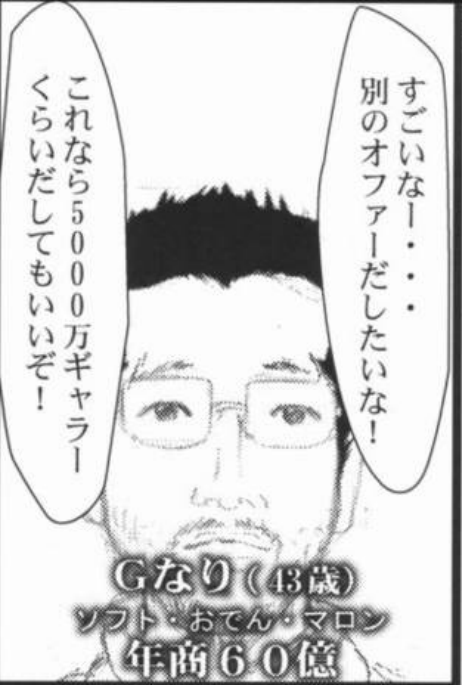 すごいなー・・・
別のオファーだしたいな！
これなら５０００万ギャラー
くらいだしてもいいぞ！
Gなり（43歳）
ソフト・おでん・マロン
年商６０億